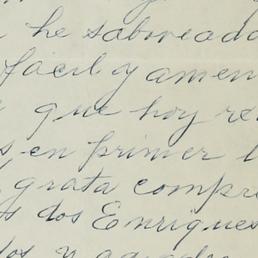 he saboreado
fácil y amen
que hoy re
en primer l
grata compr
dos Enriques
y